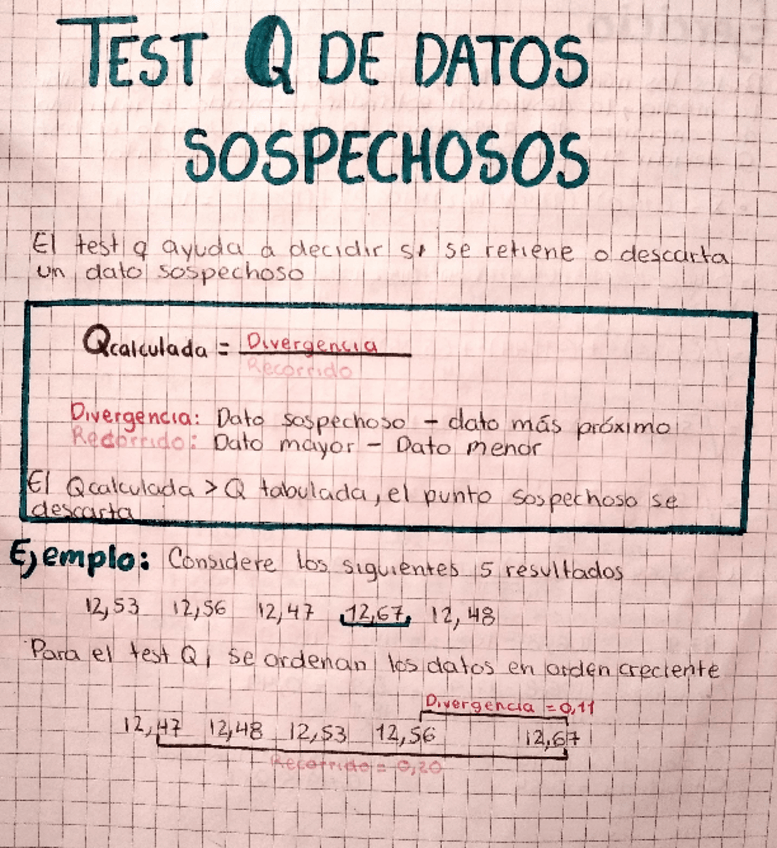 TEST Q DE DATOS
SOSPECHOSOS
El test q ayuda a decidir si se retiene o descarta
un dato sospechoso
Qcalculada = Divergencia
Recorrido
Divergencia: Dato sospechoso - dato más próximo
Recorrido: Dato mayor - Dato menor
El Qcalculada > Q tabulada, el punto sospechoso se
descarta
Ejemplo: Considere los siguientes 5 resultados
12,53 12,56 12,47 12,67 12,48
Para el test Q, se ordenan los datos en orden creciente
Divergencia = 0,11
12,47 12,48 12,53 12,56 12,67
Recorrido = 0,20